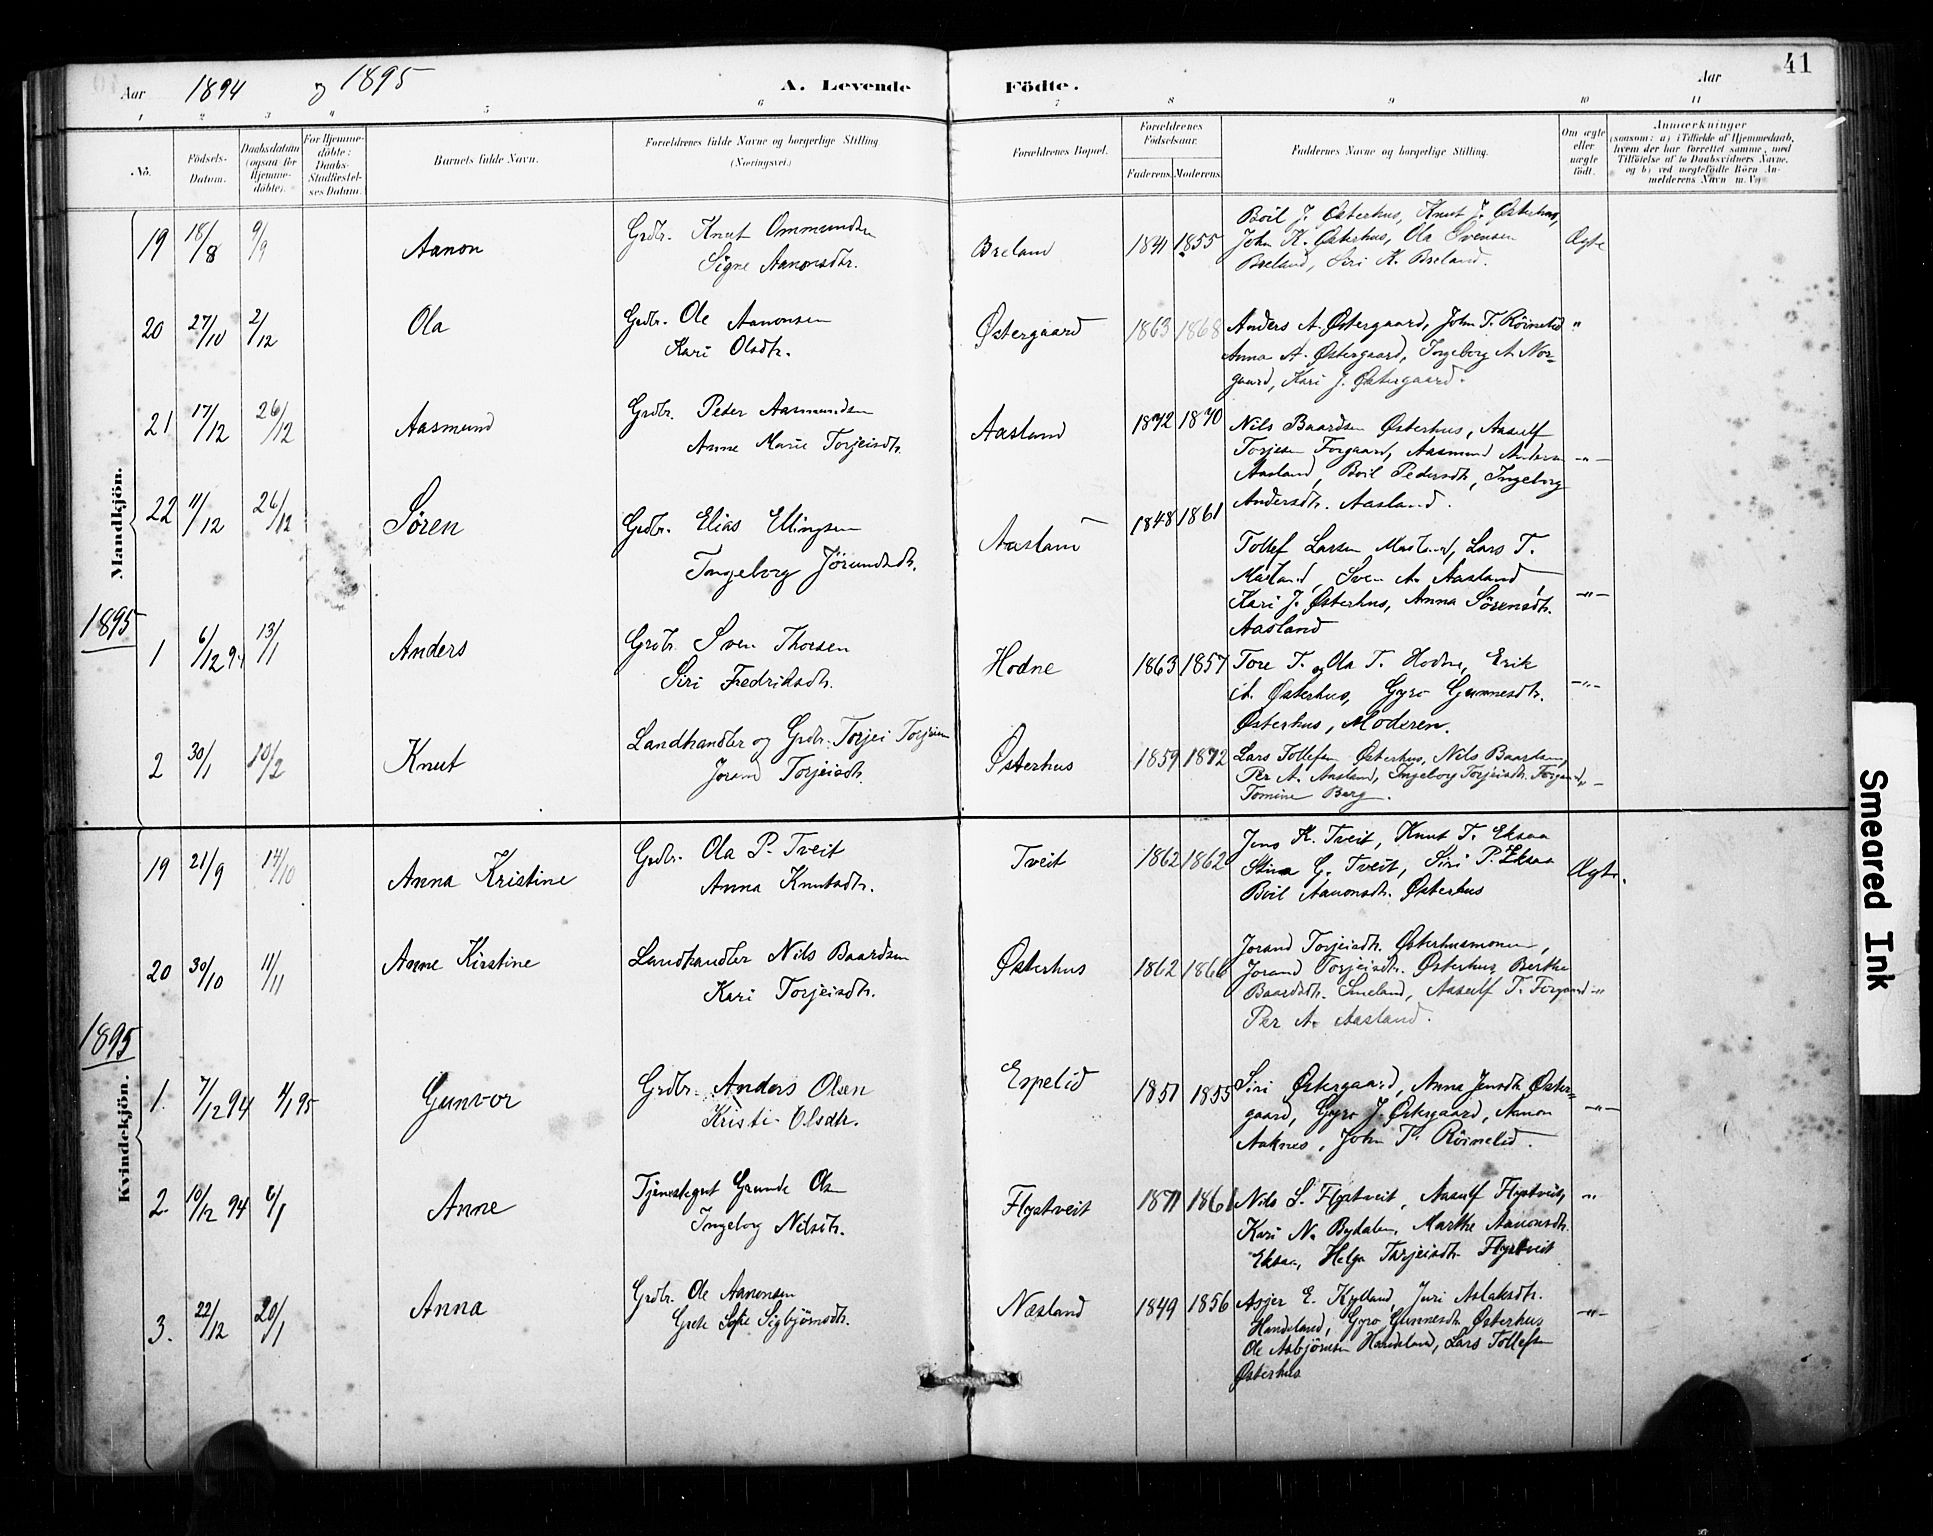 Aar 1894 og 1895 A. Levende Födte. Aar 41
1 2 3 4 5 6 7 8 9 10 11
No. Födsels-Datum. Daabsdatum (ogsaa for Hjemme-döbte). For Hjemme-döbte: Daabs-Stadfæstel-ses Datum. Barnets fulde Navn. Forældrenes fulde Navne og borgerlige Stilling (Næringsvei.) Forældrenes Bopæl. Forældrenes Födselsaar. Faderens. Moderens. Faddernes Navne og borgerlige Stilling. Om ægte eller uægte födt. Anmærkninger
(saasom: a) i Tilfælde af Hjemmedaab,
hvem der har forrettet samme, med
Tilföielse af to Daabsvidners Navne,
og b) ved uægtefödte Börn An-
melderens Navn m. V.)
Mandkjön.
19 18/8 9/9 Aanon Grdbr. Knut Ommundsen
Signe Aanonsdtr.
Breland 1841 1855
Boil J. Østerhus, Knut J. Østerhus,
John K. Østerhus, Ola Svensen
Breland, Siri K. Breland.
Ægte
20 27/10 2/12 Ola Grdbr. Ole Aanonsen
Kari Olsdtr.
Østergaard 1863 1868
Anders A. Østergaard, John T. Röinelid
Anna A. Østergaard, Ingeborg A. Nor-
gaard, Kari J. Østergaard.
"
21 17/12 26/12 Aasmund Grdbr. Peder Aasmundsen
Anne Marie Torjeisdtr.
Aasland 1872 1870
Nils Baardsen Østerhus, Aasulf
Torjesen Forgaard, Aasmund
Aasland, Boil Pedersdtr, Ingeborg
Andersdtr. Aasland.
-"-
22 11/12 26/12 Sören Grdbr. Elias Ellingsen
Ingeborg Jörundsdtr.
Aasland 1848 1861
Tollef Larsen Lars T.
Sven A. Aasland,
Kari J. Østerhus, Anna Sörensdtr.
Aasland
-"-
1895
1 6/12 94 13/1 Anders Grdbr. Sven Thorsen
Siri Fredriksdtr.
Hodne 1863 1857
Tore T. og Ola T. Hodne, Erik
A. Østerhus, Gyro Gunnesdtr.
Østerhus, Moderen.
-"-
2 30/1 10/2 Knut Landhandler og Grdbr. Torjei Torjeisen
Jorand Torjeisdtr.
Østerhus 1859 1872
Lars Tollefsen Østerhus, Nils Baardsen,
Per A. Aasland, Ingeborg Torjeisdtr. Forgaard
Tomine Berg.
"-
19 21/9 14/10 Anna Kristine Grdbr. Ola P. Tveit
Anna Knutsdtr.
Tveit 1862 1862
Jens K. Tveit, Knut T. Eksaa
Stina G. Tveit, Siri P. Eksaa
Boil Aanonsdtr. Østerhus
Ægte.
20 30/10 11/11 Anne Kirstine Landhandler Nils Baardsen
Kari Torjeisdtr.
Østerhus 1862 1866
Jorand Torjeisdtr. Østerhusmonen,
Jorand Torjeisdtr. Østerhus, Berthe
Baardsdtr. Smeland, Aasulf T. Forgaard
Per A. Aasland.
-"
1895
Kvindekjön.
1. 7/12 94 4/1 95 Gunvor Grdbr. Anders Olsen
Kristi Olsdtr.
Espelid 1851 1855
Siri Østergaard, Anna Jensdtr Øster-
gaard, Gyro J. Østergaard, Aanon
Aaknes, John T. Röinelid.
-"-
2. 10/12 94 6/1 Anne Tjenestegut Gunde Olsen
Ingeborg Nilsdtr.
Flystveit 1871 1861
Nils S. Flystveit, Aasulf Flystveit,
Kari N. Bydalen, Marthe Aanonsdtr.
Eksaa, Helga Tarjeisdtr. Flystveit
"
3. 22/12 20/1 Anna Grdbr. Ole Aanonsen
Grete Sofie Sigbjörnsdtr.
Næsland 1849 1856
Asjer E. Kylland, Juri Aslaksdtr.
Handeland, Gyro Gunnesdtr. Østerhus
Ole Asbjörnsen Handeland, Lars Tollefsen
Østerhus
-"-
Smeared Ink